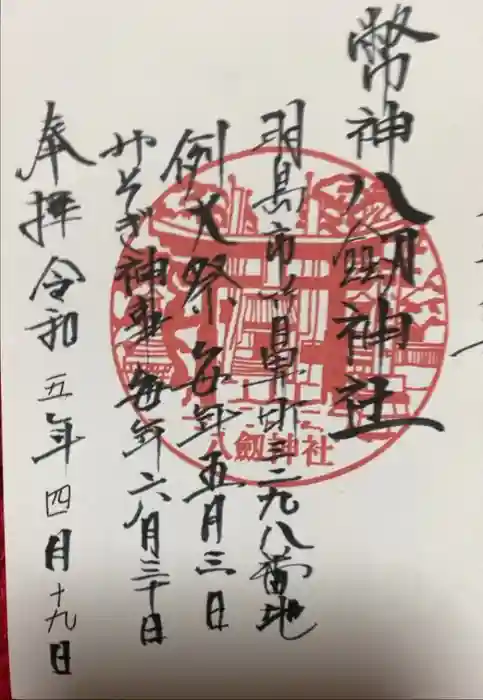 幣神八剱神社
羽島市竹鼻町三二九八番地
例大祭、毎年五月三日
みそぎ神事毎年六月三十日
奉拝 令和五年四月十九日
八剱神社